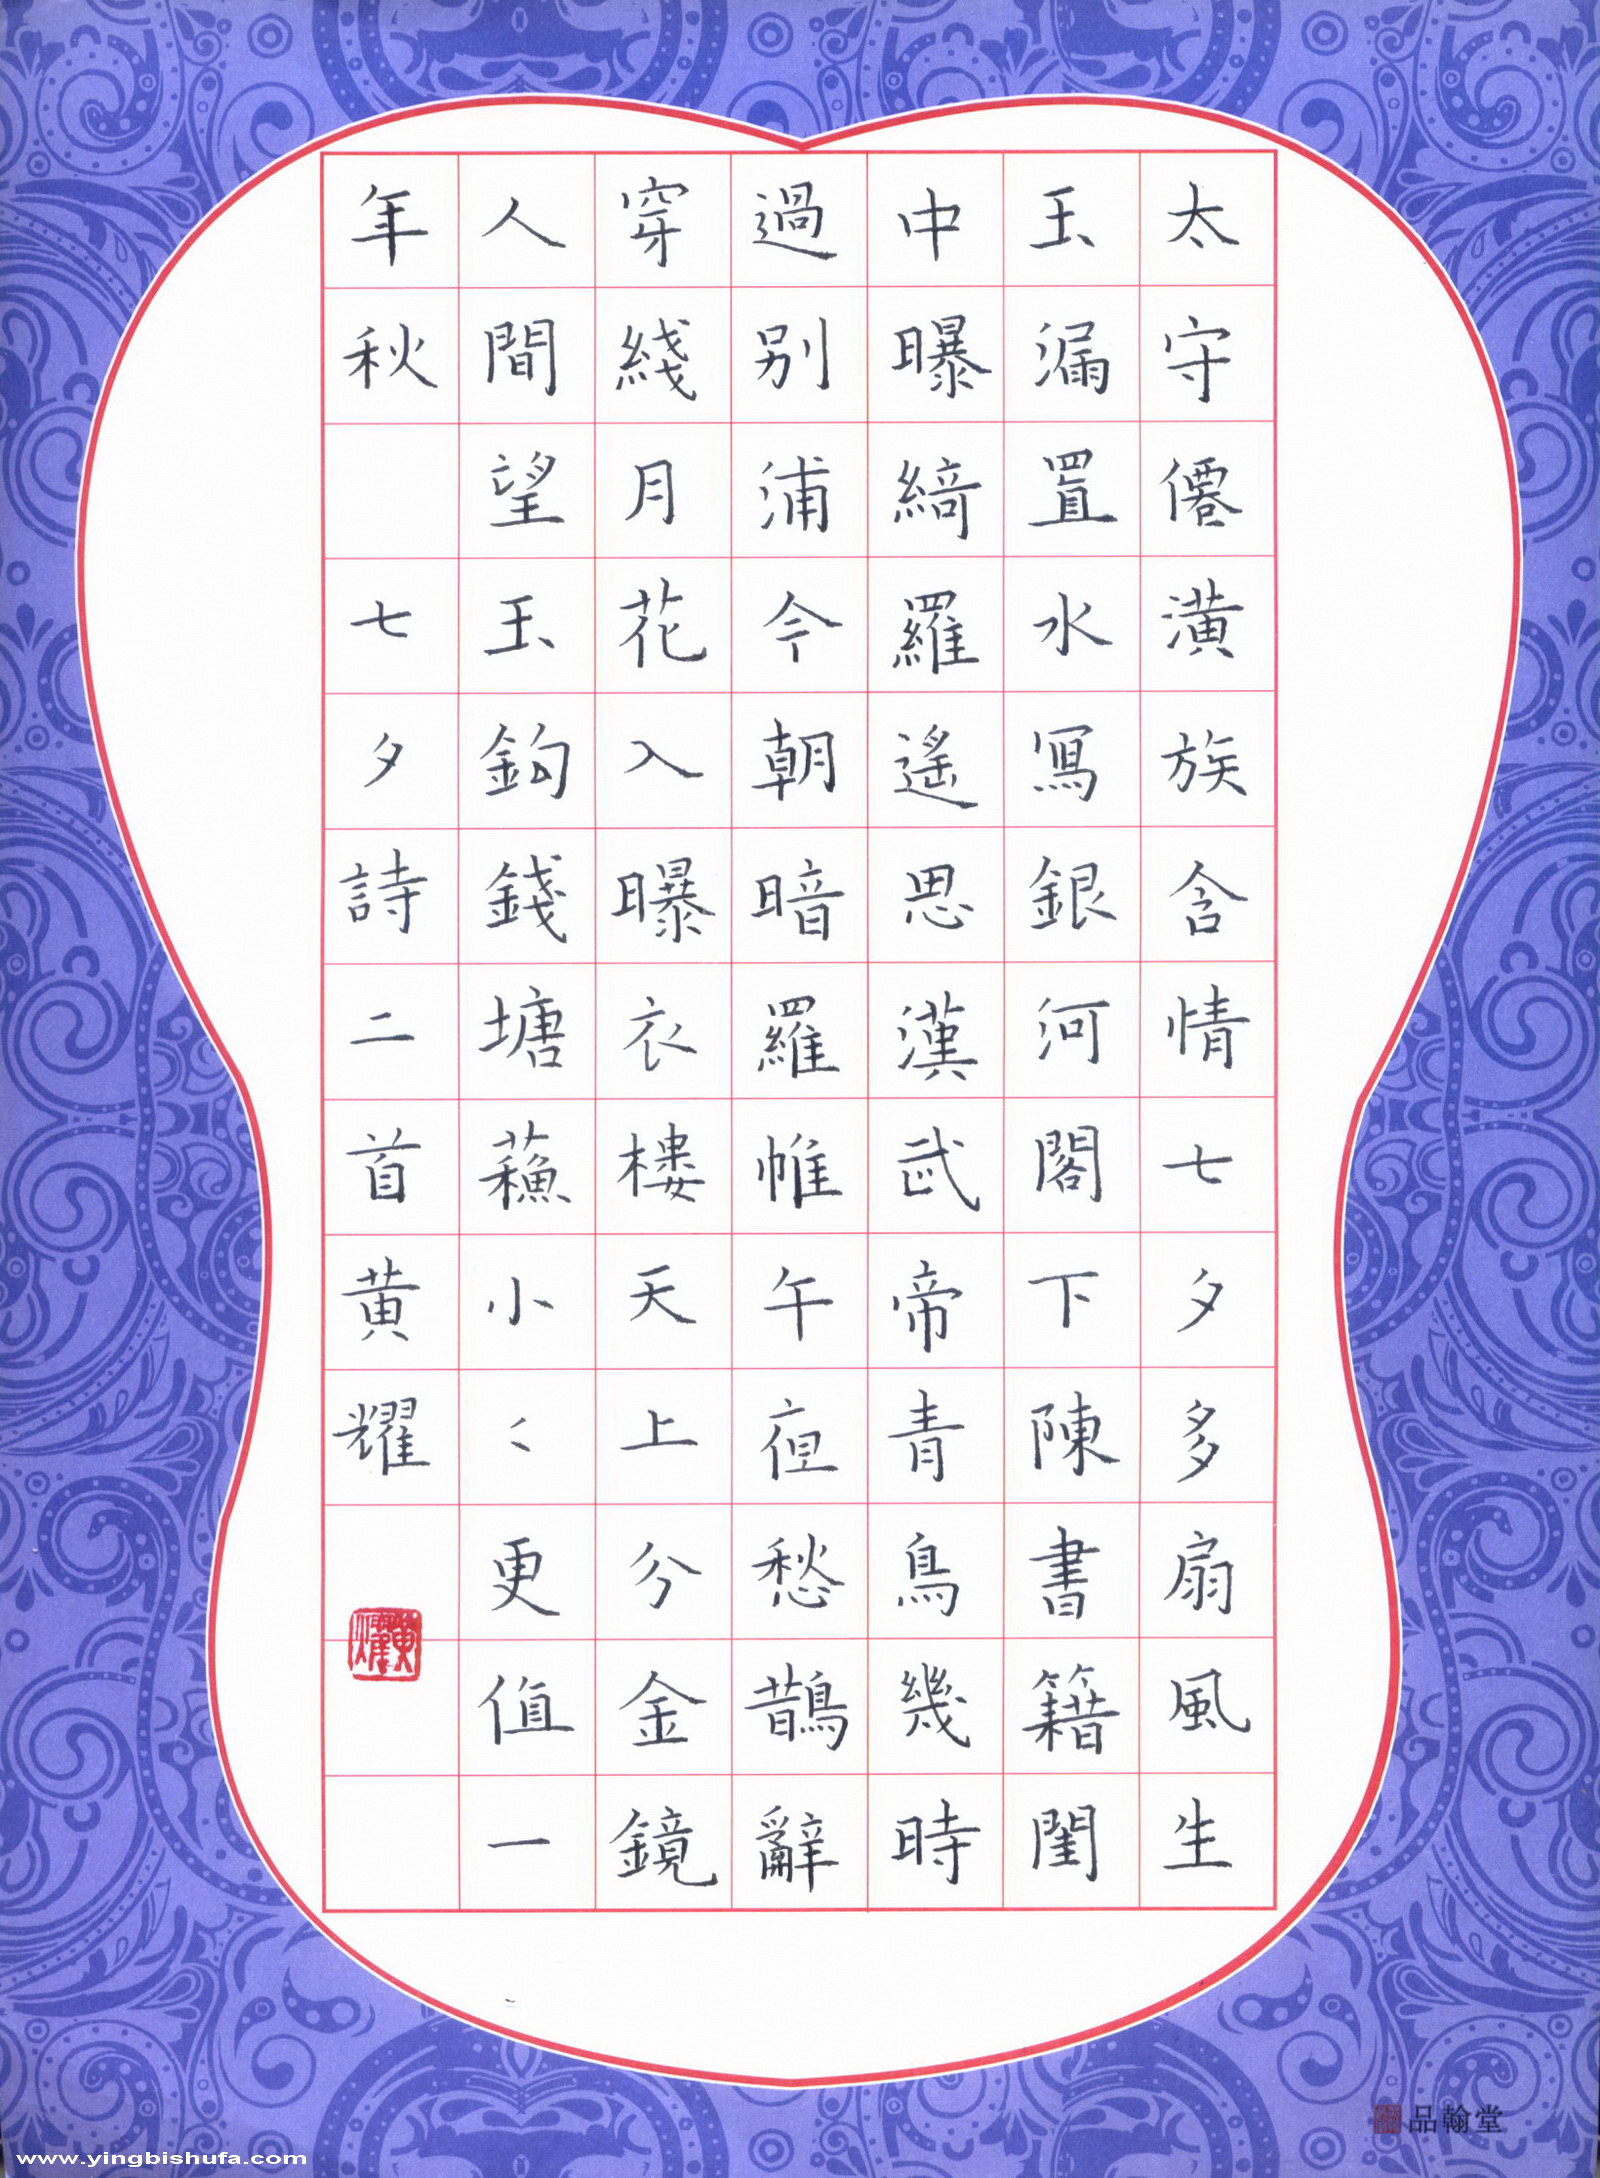 太守僊潢族含情七夕多扇風生
玉漏置水寫銀河閣下陳書籍閨
中曝綺羅遙思漢武帝青鳥幾時
過別浦今朝暗羅帷午夜愁鵲辭
穿綫月花入曝衣樓天上分金鏡
人間望玉鈎錢塘蘓小〻更值一
年秋 七夕詩二首黄耀
黄耀
品翰堂
www.yingbishufa.com